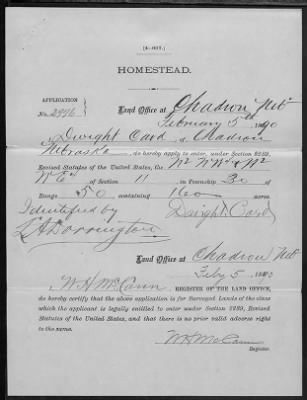 [4-007.]
HOMESTEAD.
APPLICATION
No. 2446
Land Office at Chadron Neb
February 5th 1890
I, Dwight Card of Chadron
Nebraska, do hereby apply to enter, under Section 2289,
Revised Statutes of the United States, the N2 NW4 & N2
NE4 of Section 11 in Township 30 of
Range 50 containing 160 acres
Identified by Dwight Card
L A Dorrington
Land Office at Chadron Neb
Feby 5 1890
I, W H McCann, REGISTER OF THE LAND OFFICE,
do hereby certify that the above application is for Surveyed Lands of the class
which the applicant is legally entitled to enter under Section 2289, Revised
Statutes of the United States, and that there is no prior valid adverse right
to the same.
W H McCann
Register.